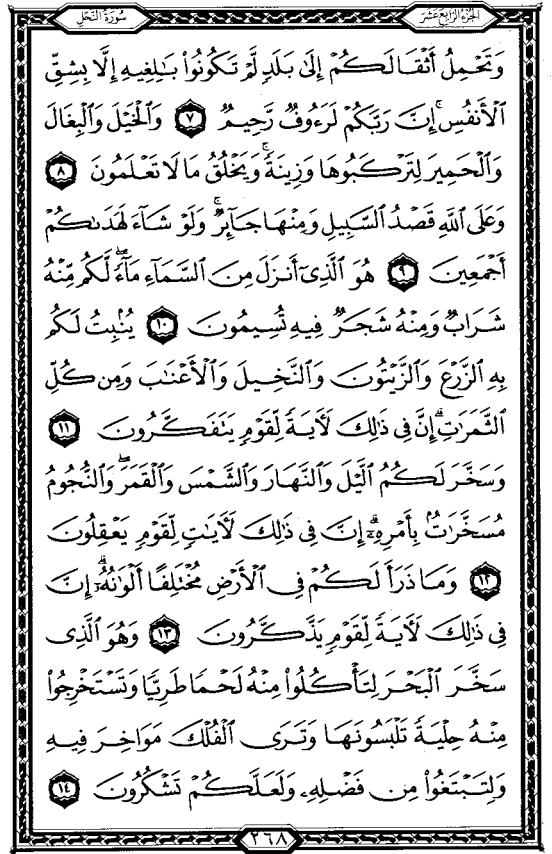 الجزء الرابع عشر
سورة النحل
وَتَحْمِلُ أَثْقَالَكُمْ إِلَىٰ بَلَدٍ لَّمْ تَكُونُوا۟ بَٰلِغِيهِ إِلَّا بِشِقِّ
ٱلْأَنفُسِ ۚ إِنَّ رَبَّكُمْ لَرَءُوفٌ رَّحِيمٌ ٧ وَٱلْخَيْلَ وَٱلْبِغَالَ
وَٱلْحَمِيرَ لِتَرْكَبُوهَا وَزِينَةً ۚ وَيَخْلُقُ مَا لَا تَعْلَمُونَ ٨
وَعَلَى ٱللَّهِ قَصْدُ ٱلسَّبِيلِ وَمِنْهَا جَآئِرٌ ۚ وَلَوْ شَآءَ لَهَدَىٰكُمْ
أَجْمَعِينَ ٩ هُوَ ٱلَّذِىٓ أَنزَلَ مِنَ ٱلسَّمَآءِ مَآءً ۖ لَّكُم مِّنْهُ
شَرَابٌ وَمِنْهُ شَجَرٌ فِيهِ تُسِيمُونَ ١٠ يُنۢبِتُ لَكُم
بِهِ ٱلزَّرْعَ وَٱلزَّيْتُونَ وَٱلنَّخِيلَ وَٱلْأَعْنَٰبَ وَمِن كُلِّ
ٱلثَّمَرَٰتِ ۗ إِنَّ فِى ذَٰلِكَ لَءَايَةً لِّقَوْمٍ يَتَفَكَّرُونَ ١١
وَسَخَّرَ لَكُمُ ٱلَّيْلَ وَٱلنَّهَارَ وَٱلشَّمْسَ وَٱلْقَمَرَ ۖ وَٱلنُّجُومُ
مُسَخَّرَٰتٌۢ بِأَمْرِهِۦٓ ۗ إِنَّ فِى ذَٰلِكَ لَءَايَٰتٍ لِّقَوْمٍ يَعْقِلُونَ
١٢ وَمَا ذَرَأَ لَكُمْ فِى ٱلْأَرْضِ مُخْتَلِفًا أَلْوَٰنُهُۥٓ ۗ إِنَّ
فِى ذَٰلِكَ لَءَايَةً لِّقَوْمٍ يَذَّكَّرُونَ ١٣ وَهُوَ ٱلَّذِى
سَخَّرَ ٱلْبَحْرَ لِتَأْكُلُوا۟ مِنْهُ لَحْمًا طَرِيًّا وَتَسْتَخْرِجُوا۟
مِنْهُ حِلْيَةً تَلْبَسُونَهَا وَتَرَى ٱلْفُلْكَ مَوَاخِرَ فِيهِ
وَلِتَبْتَغُوا۟ مِن فَضْلِهِۦ وَلَعَلَّكُمْ تَشْكُرُونَ ١٤
٢٦٨